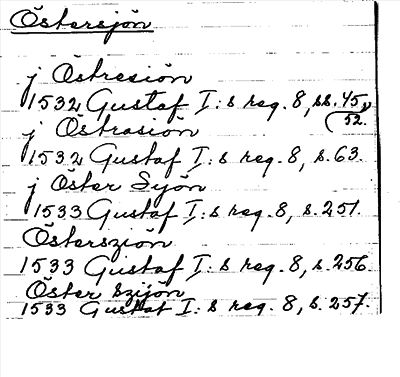 Östersjön
j Östresiön
1532 Gustaf I:s reg. 8, ss. 45,
52.
j Östrasiön
1532 Gustaf I:s reg. 8, s. 63.
j Öster Syön
1533 Gustaf I:s reg. 8, s. 251.
Östersziön
1533 Gustaf I:s reg. 8, s. 256.
Öster Szijön
1533 Gustaf I:s reg. 8, s. 257.